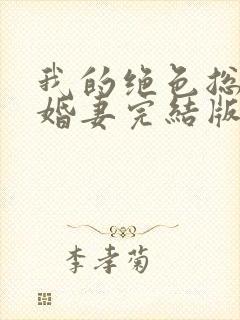 我的绝色总
婚妻完结版
李孝菊